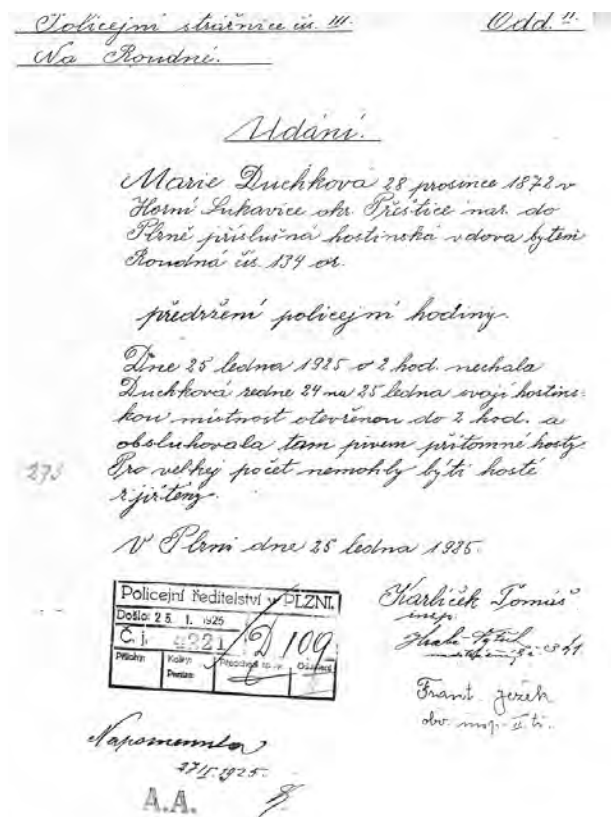 Policejní strážnice čís. III. Odd. II.
Na Roudné.
Udání.
Marie Duchková 28 prosince 1872 v
Horní Lukavice okr. Přeštice nar. do
Plzně příslušná hostinská vdova bytem
Roudná čís. 134 or.
předržení policejní hodiny.
Dne 25 ledna 1925 o 2 hod. nechala
Duchková ze dne 24 na 25 ledna svojí hostins-
kou místnost otevřenou do 2 hod. a
obsluhovala tam pivem přítomné hosty.
Pro velký počet nemohly býti hosté
zjištěny.
V Plzni dne 25 ledna 1925.
Policejní ředitelství v PLZNI.
Došlo: 25. 1. 1925
Č. j. 4321 D 109
Přílohy: Kolky:
Peníze:
Karlíček Tomáš
insp.
Frant. Ježek
obv. insp. II. tř.
Napomenuta
1925.
A.A.
273